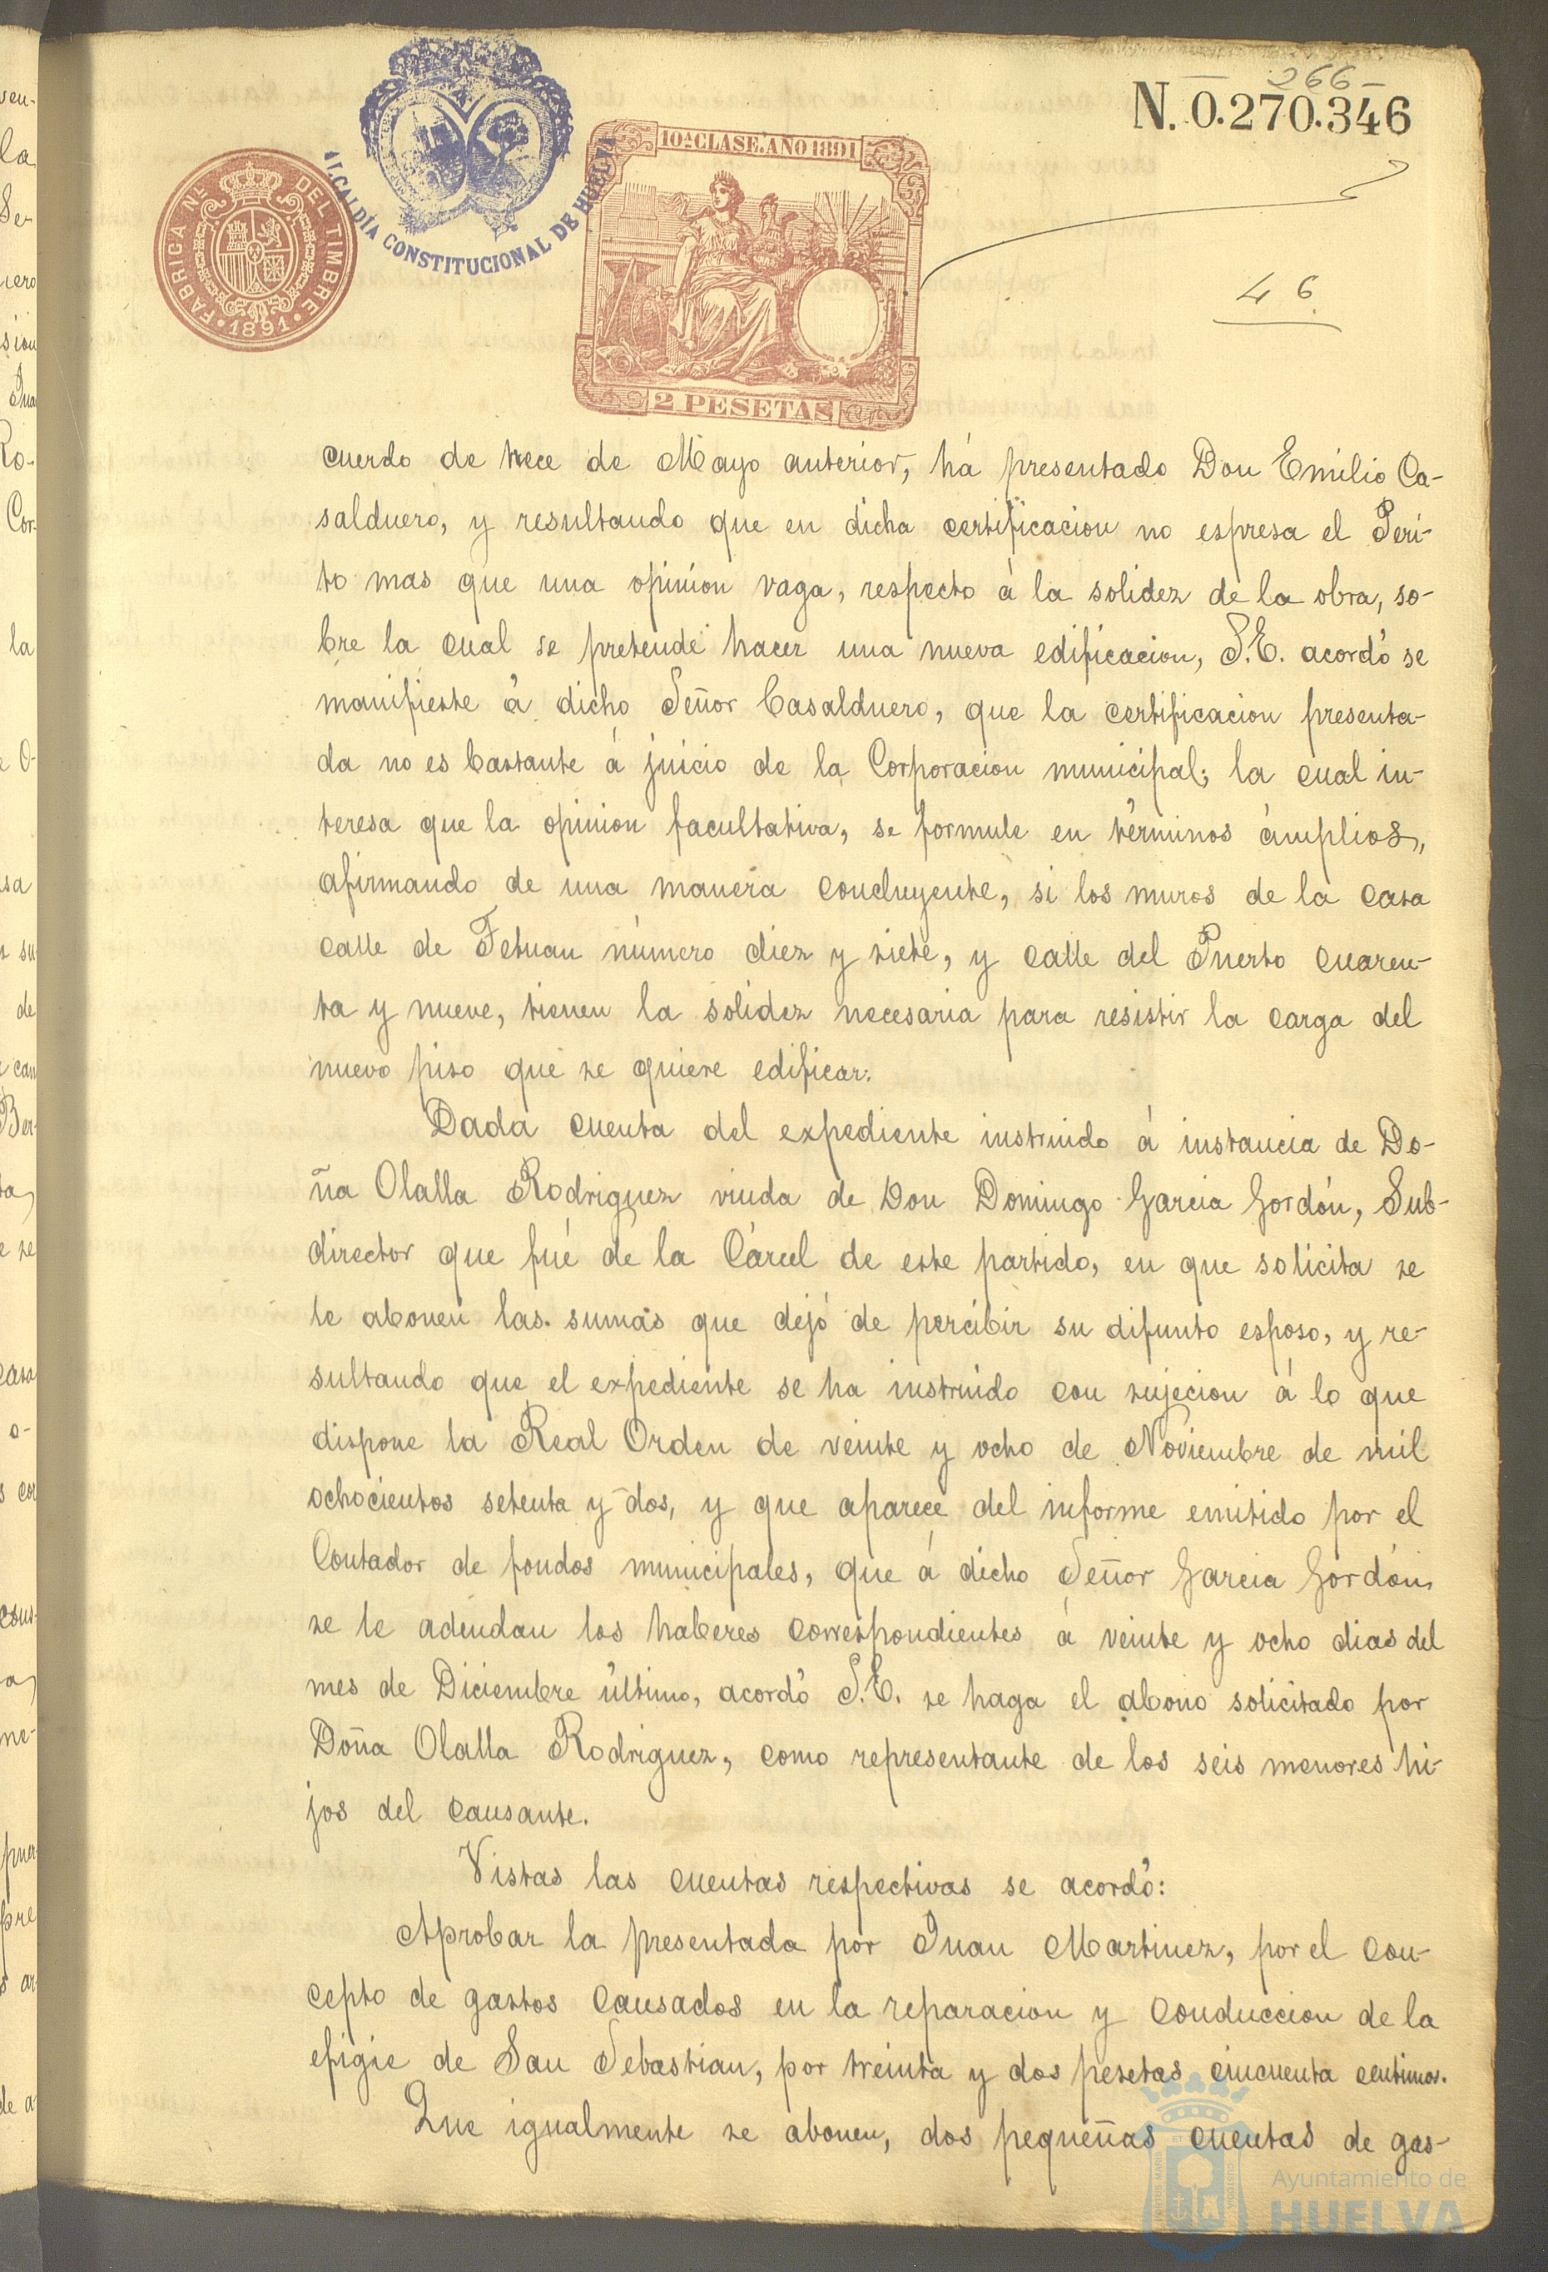 266-
N. 0.270.346
ALCALDÍA CONSTITUCIONAL DE HUELVA
FÁBRICA Nᴸ DEL TIMBRE
1891
10ª CLASE. AÑO 1891
2 PESETAS
46
cuerdo de trece de Mayo anterior, há presentado Don Emilio Ca-
salduero, y resultando que en dicha certificacion no espresa el Peri-
to mas que una opinion vaga, respecto á la solidez de la obra, so-
bre la cual se pretende hacer una nueva edificacion, S.E. acordó se
manifieste á dicho Señor Casalduero, que la certificacion presenta-
da no es bastante á juicio de la Corporacion municipal; la cual in-
teresa que la opinion facultativa, se formule en términos ámplios,
afirmando de una manera concluyente, si los muros de la casa
calle de Tetuan número diez y siete, y calle del Puerto cuaren-
ta y nueve, tienen la solidez necesaria para resistir la carga del
nuevo piso que se quiere edificar.
Dada cuenta del expediente instruido á instancia de Do-
ña Olalla Rodriguez viuda de Don Domingo Garcia Gordón, Sub-
director que fué de la Cárcel de este partido, en que solicita se
le abonen las sumas que dejó de percibir su difunto esposo, y re-
sultando que el expediente se ha instruido con sujecion á lo que
dispone la Real Orden de veinte y ocho de Noviembre de mil
ochocientos setenta y dos, y que aparece del informe emitido por el
Contador de fondos municipales, que á dicho Señor Garcia Gordón
se le adeudan los haberes correspondientes á veinte y ocho dias del
mes de Diciembre último, acordó S.E. se haga el abono solicitado por
Doña Olalla Rodriguez, como representante de los seis menores hi-
jos del causante.
Vistas las cuentas respectivas se acordó:
Aprobar la presentada por Juan Martinez, por el con-
cepto de gastos causados en la reparacion y conduccion de la
efigie de San Sebastian, por treinta y dos pesetas cincuenta centimos.
Que igualmente se abonen, dos pequeñas cuentas de gas-
Ayuntamiento de
HUELVA